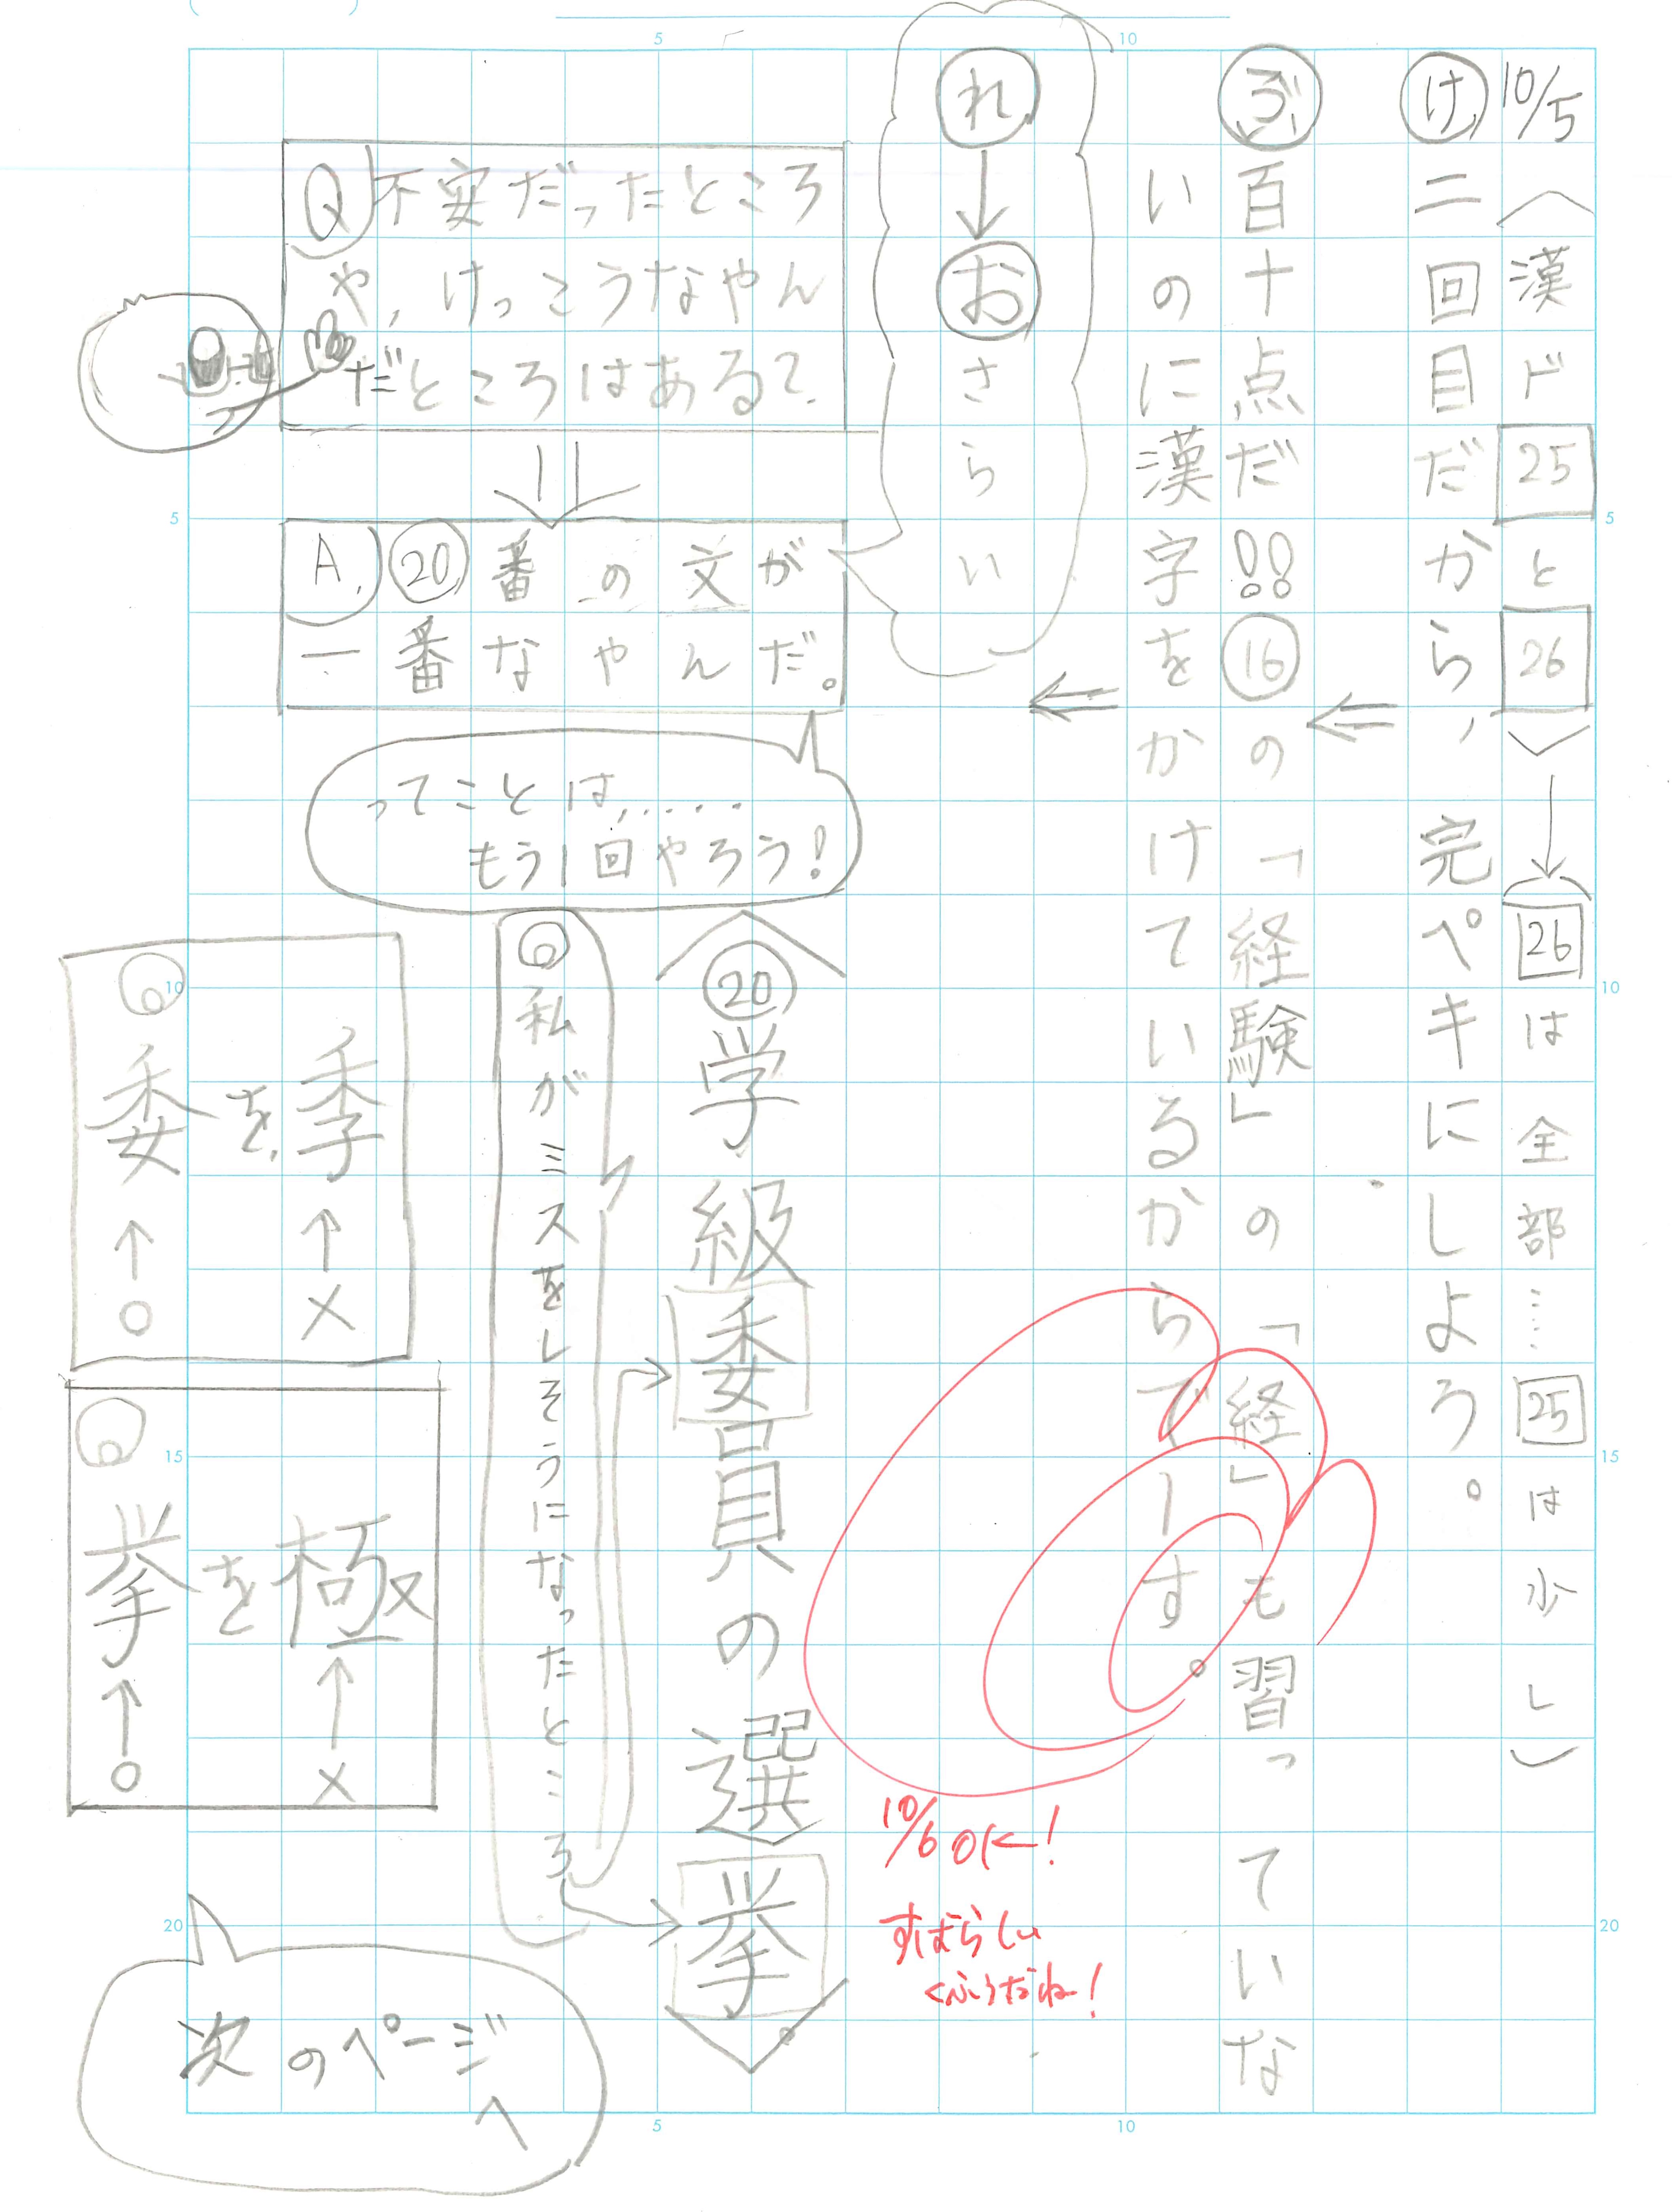 10/5 〈漢ド25と26〉→(26は全部……25は少し)
け 二回目だから、完ペキにしよう。
ぶ 百十点だ!!⑯の「経験」の「経」も習っていな
いのに漢字をかけているからでーす。
れ→おさらいさ
Q 不安だったところ
や、けっこうなやん
だところはある?
A. ⑳番の文が
一番なやんだ。
ってことは、……
もう1回やろう!
〈⑳学級委員の選挙。〉
私がミスをしそうになったところ
季→×
を、
委→○
極→×
を
挙→○
次のページ
へ
10/6 OK!
すばらしい
くふうだね!
5
10
5
10
15
20
5
10
15
20
5
10